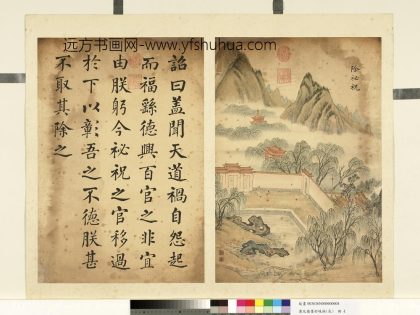 远方书画网-www.yfshuhua.com
除祕祝
詔曰蓋聞天道禍自怨起
而福繇德興百官之非宜
由朕躬今祕祝之官移過
於下以彰吾之不德朕甚
不取其除之